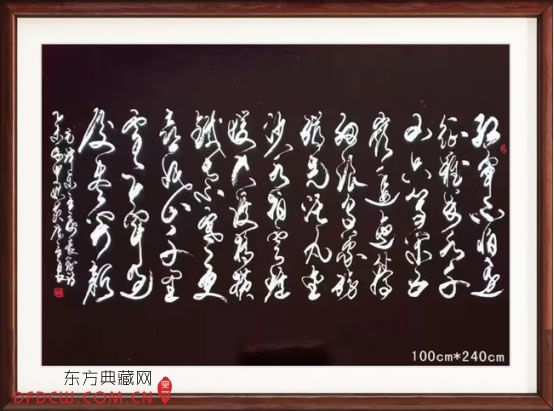 红军不怕远
征难万水千
山只等闲五
岭逶迤腾
细浪乌蒙磅
礴走泥丸金
沙水拍云崖
暖大渡桥横
铁索寒更
喜岷山千里
雪三军过
后尽开颜
100cm*240cm
东方典藏网
DFDCW.COM.CN